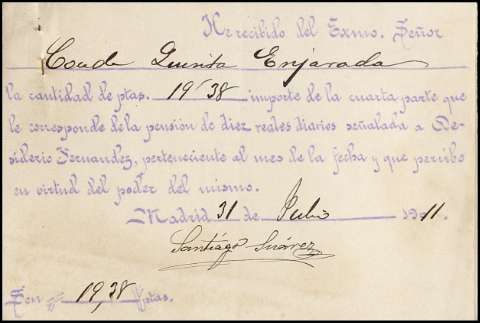 He recibido del Exmo. Señor
Conde Quinta Enjarada
la cantidad de ptas. 19'38 importe de la cuarta parte que
le corresponde de la pensión de diez reales diarios señalada a De-
siderio Fernandez, perteneciente al mes de la fecha y que percibo
en virtud del poder del mismo.
Madrid 31 de Julio 1911.
Santiago Suárez
Son 19,38 Ptas.